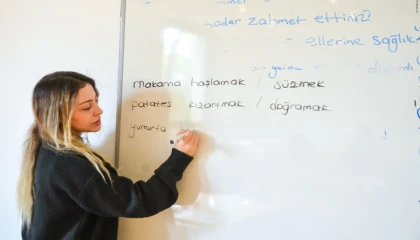 kadar zahmet ettiniz
ellerine sağlık
makarna haşlamak / süzmek
patates kızartmak / doğramak
yumurta